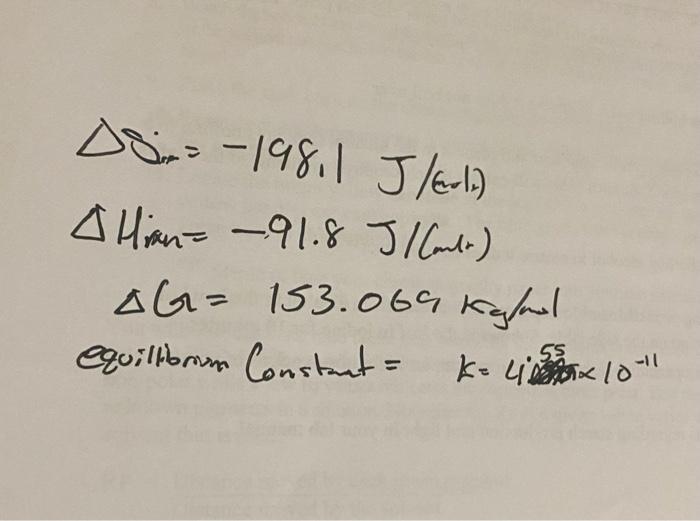 ΔSrxn = -198.1 J/(mol·k)
ΔHrxn = -91.8 J/(mol·k)
ΔG = 153.069 Kg/mol
equilibrium Constant = K = 4.55 x 10^-11